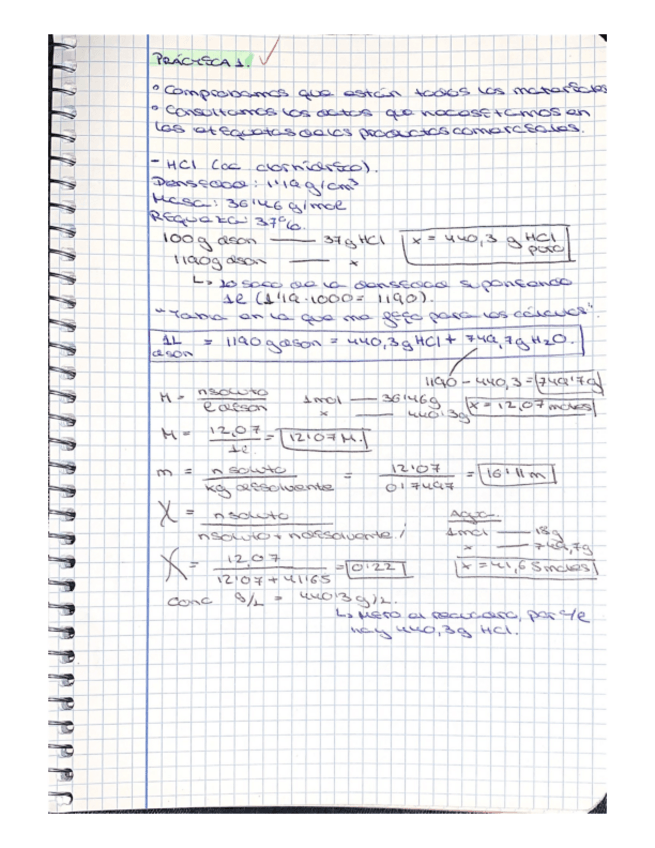 PRÁCTICA 1.
° Comprobamos que están todos los materiales
° Consultamos los datos que necesitamos en
las etiquetas de los productos comerciales.
- HCl (ac clorhídrico).
Densidad: 1'19 g/cm³
Masa: 36'46 g/mol
Riqueza: 37%.
100g dison — 37g HCl x = 440,3 g HCl puro
1190g dison — x
↳ lo saco de la densidad suponiendo
1l (1'19·1000 = 1190).
"Tama en la que me fijo para los cálculos".
1L dison = 1190g dison = 440,3g HCl + 749,7g H2O.
1190 - 440,3 = 749'7g
M = nsoluto / l dison 1mol — 36'46g x — 440'3g x = 12,07 moles
M = 12,07 / 1l = 12'07 M.
m = n soluto / kg disolvente = 12'07 / 0'7497 = 16'11 m
X = n soluto / nsoluto + ndisolvente;
Agua.
1mol — 18g
x — 749,7g
x = 41,65 moles
X = 12,07 / 12'07 + 41'65 = 0'22
conc g/L = 440'3 g/L.
↳ Mero al recuadro, por c/l
hay 440,3g HCl.